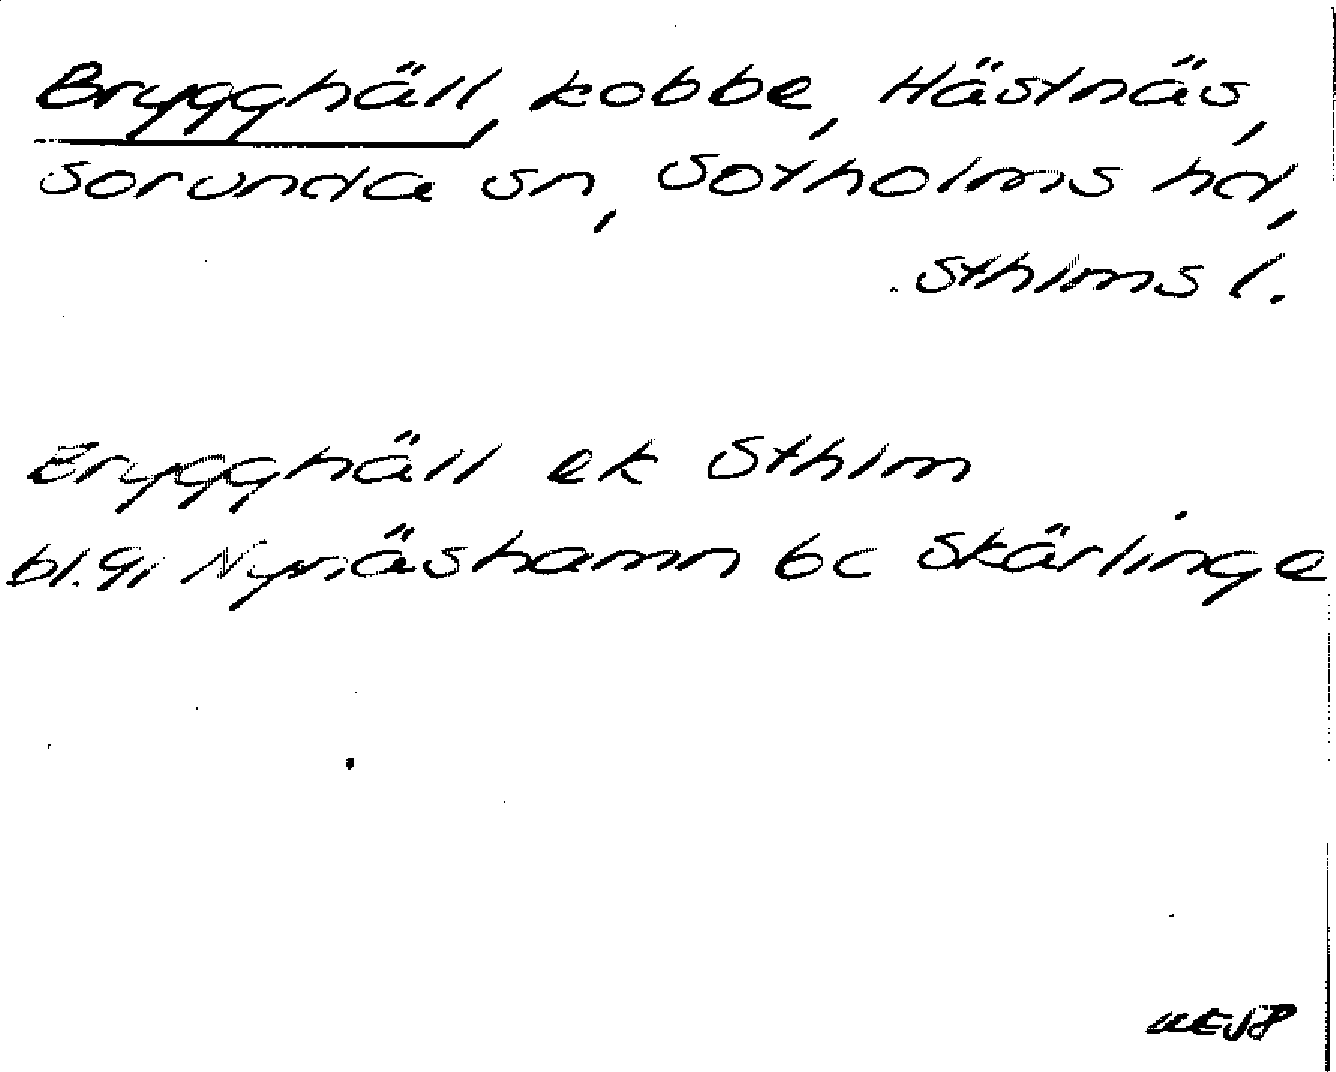 Brygghäll, kobbe, Hästnäs,
Sorunda sn, Sotholms hd,
Sthlms l.
Brygghäll ek Sthlm
bl. 91 Nynäshamn 6c Skärlinge